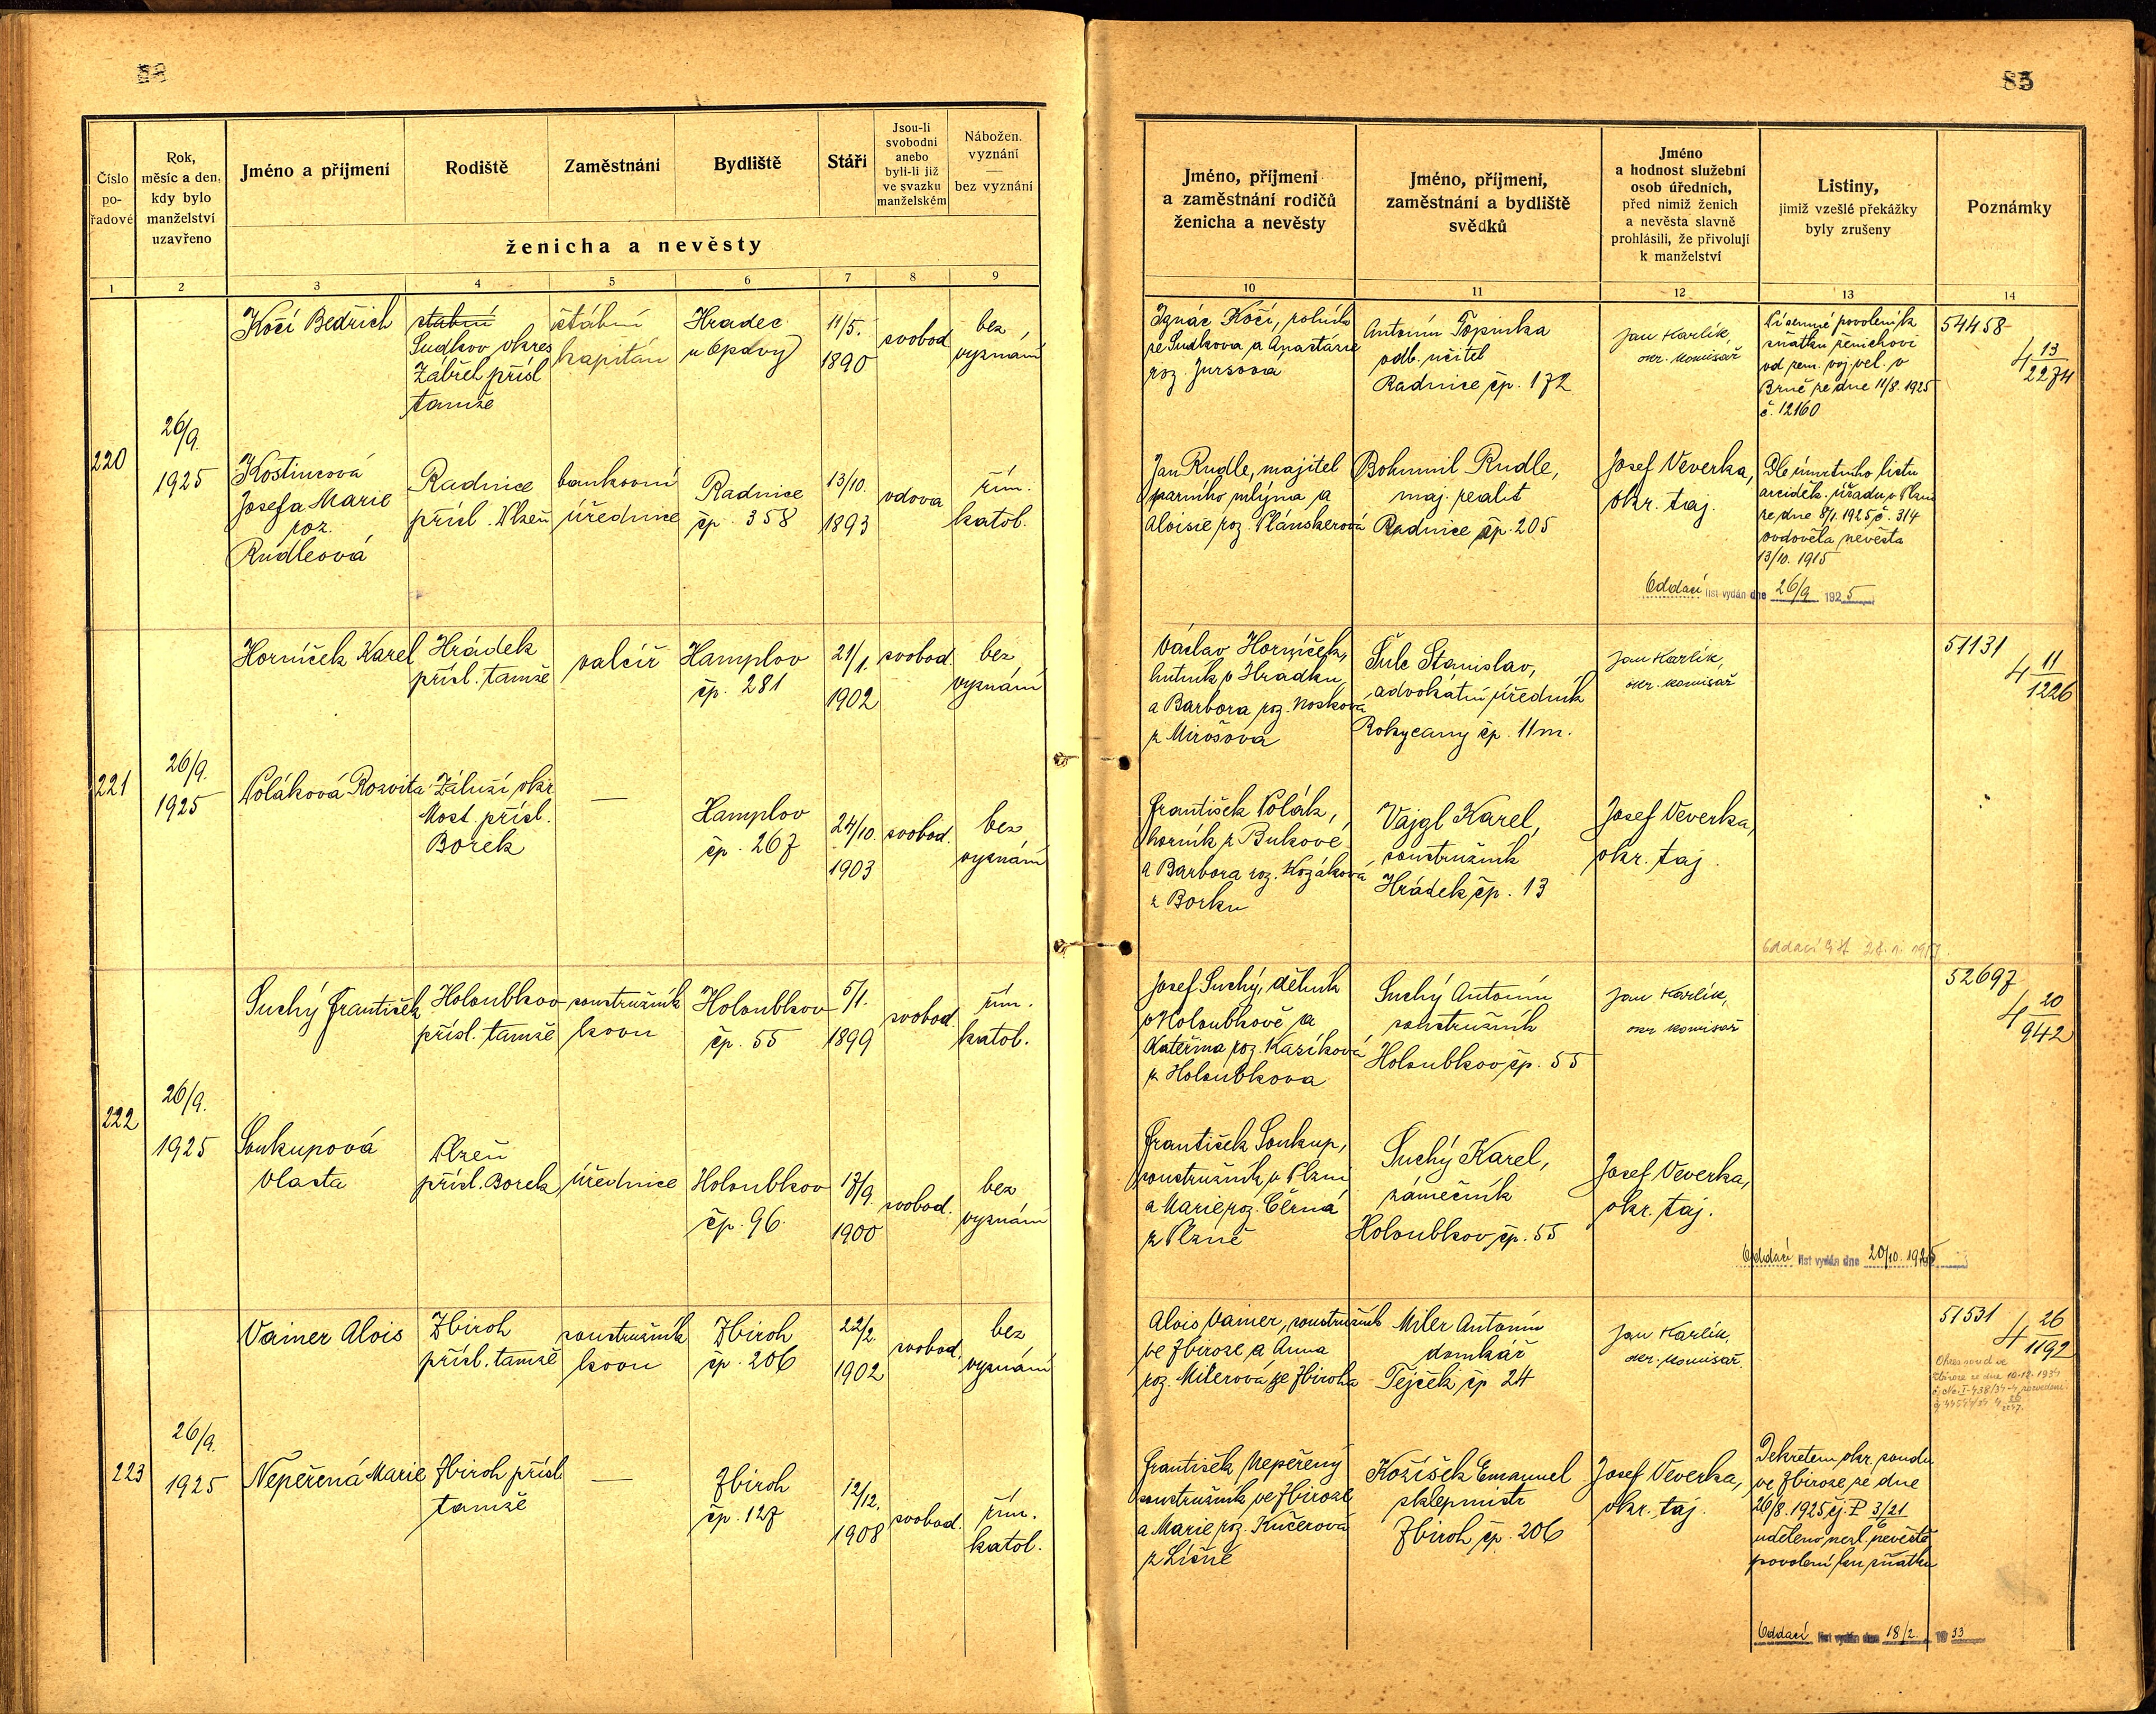 88
85
Číslo pořadové
Rok, měsíc a den, kdy bylo manželství uzavřeno
Jméno a příjmení
Rodiště
Zaměstnání
Bydliště
Stáří
Jsou-li svobodni anebo byli-li již ve svazku manželském
Nábožen. vyznání — bez vyznání
ženicha a nevěsty
Jméno, příjmení a zaměstnání rodičů ženicha a nevěsty
Jméno, příjmení, zaměstnání a bydliště svědků
Jméno a hodnost služební osob úředních, před nimiž ženich a nevěsta slavně prohlásili, že přivolují k manželství
Listiny, jimiž vzešlé překážky byly zrušeny
Poznámky
1 2 3 4 5 6 7 8 9 10 11 12 13 14
220
26/9.
1925
Kočí Bedřich
štábní
Sudkov okres
Zábřeh přísl
tamže
štábní
kapitán
Hradec
u Opavy
11/5.
1890
svobod
bez
vyznání
Ignác Kočí, rolník
ze Sudkova a Anastasie
roz. Jursova
Antonín Topinka
odb. učitel
Radnice čp. 172
Jan Karlík,
okr. komisař
Písemné povolení k
sňatku ženichovi
od zem. voj. vel. v
Brně ze dne 11/8. 1925
č. 12160
54458
4 13/2274
Kostincová
Josefa Marie
roz.
Rudleová
Radnice
přísl. Plzeň
bankovní
úřednice
Radnice
čp. 358
13/10.
1893
vdova
řím.
katol.
Jan Rudle, majitel
parního mlýna a
Aloisie roz. Plánskerová
Bohumil Rudle,
maj. realit
Radnice čp. 205
Josef Veverka,
okr. taj.
Dle úmrtního listu
arciděk. úřadu v Plzni
ze dne 8/1. 1925 č. 314
ovdověla nevěsta
13/10. 1915
Oddací list vydán dne 26/9 1925
221
26/9.
1925
Horníček Karel
Hrádek
přísl. tamže
valcíř
Hamplov
čp. 281
21/1.
1902
svobod.
bez
vyznání
Václav Horníček,
hutník v Hrádku
a Barbora roz. Nosková
z Mirošova
Šulc Stanislav,
advokátní úředník
Rokycany čp. 11m.
Jan Karlík,
okr. komisař
51131
4 11/1226
Poláková Rosvita
Záluží okr
Most přísl.
Borek
—
Hamplov
čp. 267
24/10.
1903
svobod.
bez
vyznání
František Polák,
horník z Bukové
a Barbora roz. Kozáková
z Borku
Vajgl Karel,
soustružník
Hrádek čp. 13
Josef Veverka,
okr. taj.
Oddací list
222
26/9.
1925
Suchý František
Holoubkov
přísl. tamže
soustružník
kovu
Holoubkov
čp. 55
5/1.
1899
svobod.
řím.
katol.
Josef Suchý, dělník
v Holoubkově a
Kateřina roz. Kasíková
z Holoubkova
Suchý Antonín
soustružník
Holoubkov čp. 55
Jan Karlík,
okr. komisař
52697
4 20/942
Soukupová
Vlasta
Plzeň
přísl. Borek
úřednice
Holoubkov
čp. 96.
17/9.
1900
svobod.
bez
vyznání
František Soukup,
soustružník v Plzni
a Marie roz. Černá
z Plzně
Suchý Karel,
zámečník
Holoubkov čp. 55
Josef Veverka,
okr. taj.
Oddací list vydán dne 20/10. 1925
223
26/9.
1925
Vainer Alois
Zbiroh
přísl. tamže
soustružník
kovu
Zbiroh
čp. 206
22/2.
1902
svobod.
bez
vyznání
Alois Vainer, soustružník
ve Zbiroze a Anna
roz. Milerová ze Zbiroha
Miler Antonín
domkář
Tejček čp 24
Jan Karlík,
okr. komisař.
51531
4 26/1192
Okres. soud ve
Zbiroze ze dne 10.12.1934
Nepeřená Marie
Zbiroh přísl
tamže
—
Zbiroh
čp. 127
12/12.
1908
svobod.
řím.
katol.
František Nepeřený
soustružník ve Zbiroze
a Marie roz. Kučerová
z Líšné
Kožíšek Emanuel
sklepmistr
Zbiroh čp. 206
Josef Veverka,
okr. taj.
Dekretem okr. soudu
ve Zbiroze ze dne
26/8. 1925 čj. P 3/21
6
uděleno nezl. nevěstě
povolení ku sňatku
Oddací list vydán dne 18/2. 1933